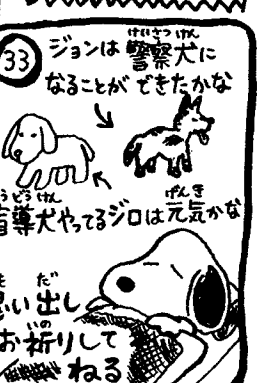 33 ジョンは警察犬に
なることが できたかな
導犬やってるジロは元気かな
い出し
お祈りして
ねる